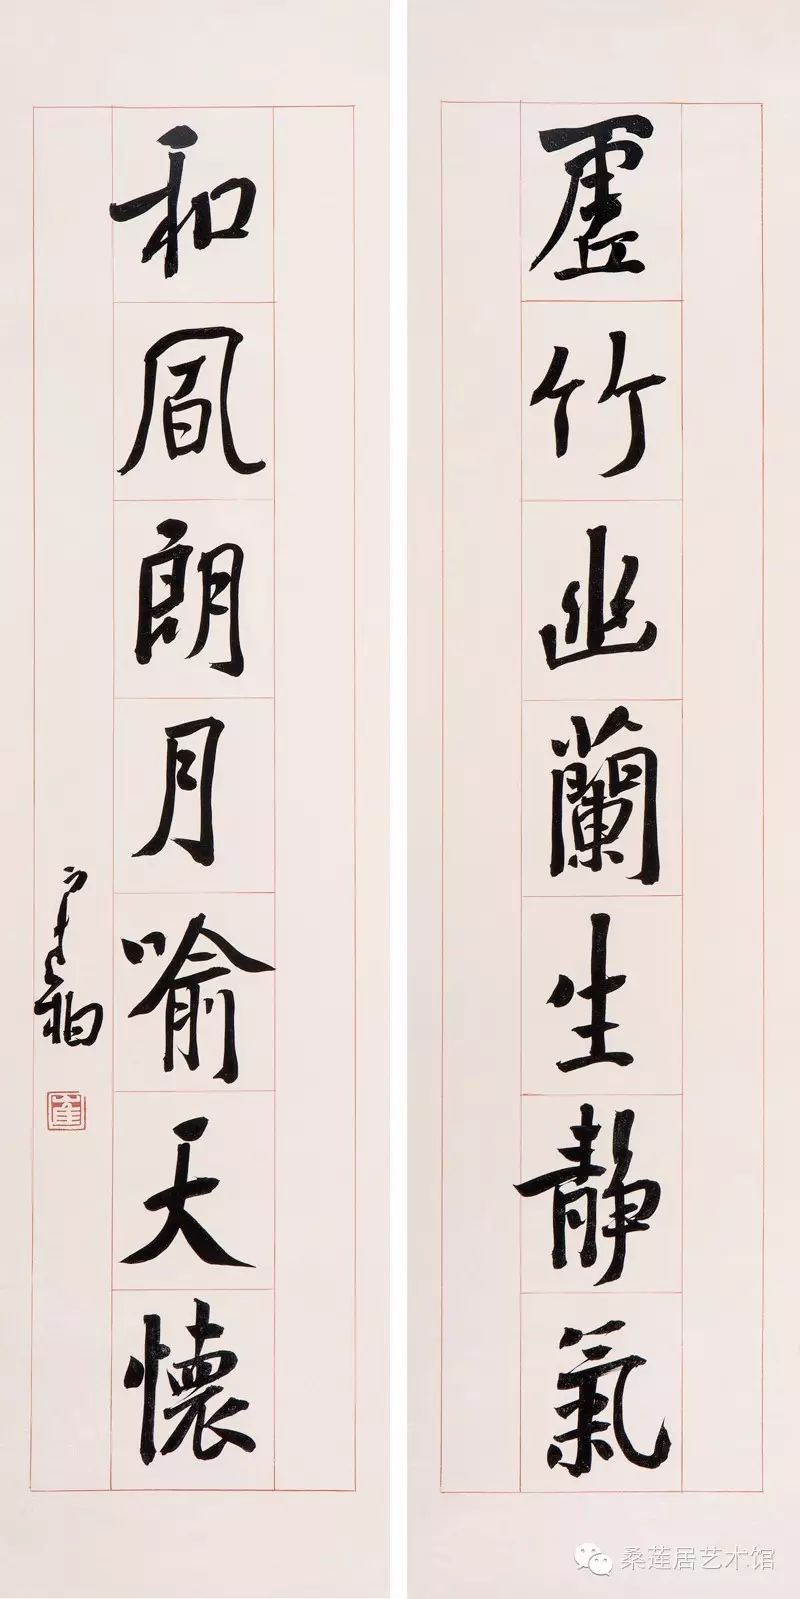 虛竹幽蘭生靜氣
和風朗月喻天懷
桑莲居艺术馆